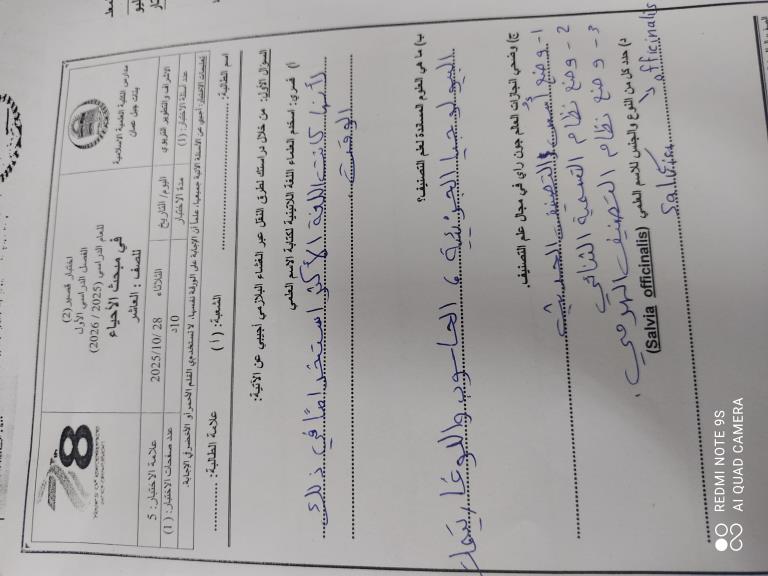 مدارس الكلية العلمية الاسلامية
بنات جبل عمان
اختبار قصير (2)
الفصل الدراسي الأول
للعام الدراسي (2025 / 2026)
في مبحث الأحياء
للصف : العاشر
78
الاشراف والتطوير التربوي
اليوم/ التاريخ
الثلاثاء 28 /2025/10
علامة الاختبار: 5
عدد أسئلة الاختبار: (1)
مدة الاختبار
10د
عدد صفحات الاختبار: (1)
تعليمات الاختبار: أجيبي عن الأسئلة الآتية جميعها، علماً أن الإجابة على الورقة نفسها، لا تستخدمي القلم الاحمر أو الاخضر في الاجابة.
اسم الطالبة: ............ الشعبة: ( ا ) علامة الطالبة: ..........
السؤال الأول: من خلال دراستك لطرق النقل عبر الغشاء البلازمي أجيبي عن الآتية:
أ) فسري: استخدم العلماء اللغة اللاتينية لكتابة الاسم العلمي
لأنها كانت اللغة الأكثر استخدامًا في ذلك
الوقت
ب) ما هي العلوم المساندة لعلم التصنيف؟
البيولوجيا الجزيئية ، الحاسوب واللوغاريتمات
ج) وضحي انجازات العالم جون راي في مجال علم التصنيف.
1- وضع أسس التصنيف الحديث
2- وضع نظام التسمية الثنائي
3- وضع نظام التصنيف الهرمي.
د) حدد كل من النوع والجنس للاسم العلمي (Salvia officinalis)
Salvia officinalis
REDMI NOTE 9S
AI QUAD CAMERA